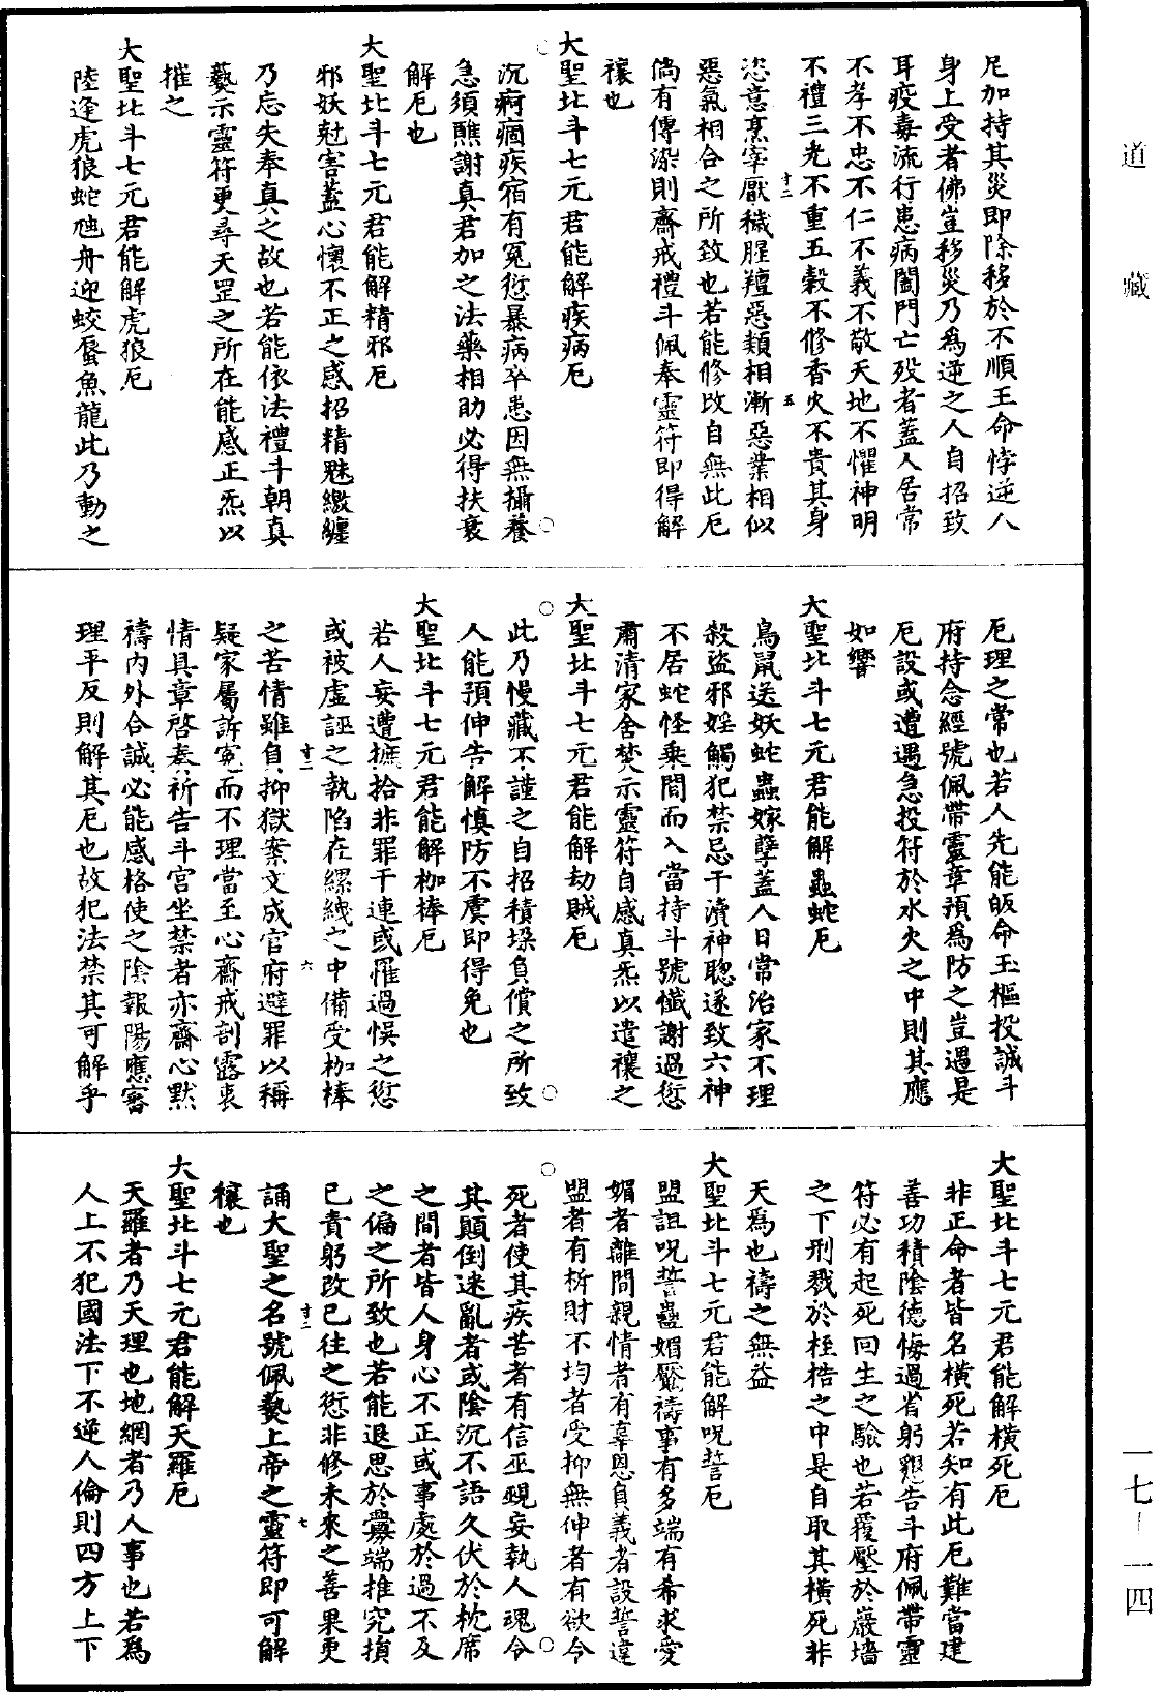 厄加持其災即除移於不順王命悖逆八
身上受者佛豈移災乃為逆之人自招致
耳疫毒流行患病闔門亡歿者蓋人居常
不孝不忠不仁不義不敬天地不懼神明
不禮三光不重五穀不修香火不貴其身
恣意烹宰厭穢腥羶惡類相漸惡業相似
惡氣相合之所致也若能修改自無此厄
倘有傳染則齋戒禮斗佩奉靈符即得解
禳也
大聖北斗七元君能解疾病厄
沉痾痼疾宿有冤愆暴病卒患因無攝養
急須醮謝真君加之法藥相助必得扶衰
解厄也
大聖北斗七元君能解精邪厄
邪妖尅害蓋心懷不正之感招精魅繳纏
乃忘失奉真之故也若能依法禮斗朝真
爇示靈符更尋天罡之所在能感正炁以
摧之
大聖北斗七元君能解虎狼厄
陸逢虎狼蛇虺舟迎蛟蜃魚龍此乃動之
厄理之常也若人先能皈命玉樞投誠斗
府持念經號佩帶靈章預為防之豈遇是
厄設或遭遇急投符於水火之中則其應
如響
大聖北斗七元君能解蟲蛇厄
鳥鼠送妖蛇蟲嫁孽蓋人日常治家不理
殺盜邪婬觸犯禁忌干瀆神聰遂致六神
不居蛇怪乘間而入當持斗號懺謝過愆
肅清家舍焚示靈符自感真炁以遣禳之
大聖北斗七元君能解劫賊厄
此乃慢藏不謹之自招積垛負償之所致
人能預伸告解慎防不虞即得免也
大聖北斗七元君能解枷棒厄
若人妄遭摭拾非罪干連或罹過悞之愆
或被虛誣之執陷在縲絏之中備受枷棒
之苦情雖自抑獄案文成官府避罪以稱
疑家屬訴冤而不理當至心齋戒剖露衷
情具章啓奏祈告斗宮坐禁者亦齋心默
禱內外合誠必能感格使之陰報陽應審
理平反則解其厄也故犯法禁其可解乎
大聖北斗七元君能解橫死厄
非正命者皆名橫死若知有此厄難當建
善功積陰德悔過省躬懇告斗府佩帶靈
符必有起死回生之驗也若覆壓於巖墻
之下刑戮於桎梏之中是自取其橫死非
天為也禱之無益
大聖北斗七元君能解呪誓厄
盟詛呪誓蠱媚厭禱事有多端有希求愛
媚者離間親情者有辜恩負義者設誓違
盟者有析財不均者受抑無伸者有欲令
死者使其疾苦者有信巫覡妄執人魂令
其顛倒迷亂者或陰沉不語久伏於枕席
之間者皆人身心不正或事處於過不及
之偏之所致也若能退思於釁端推究損
已責躬改已往之愆非修未來之善果更
誦大聖之名號佩爇上帝之靈符即可解
禳也
大聖北斗七元君能解天羅厄
天羅者乃天理也地網者乃人事也若為
人上不犯國法下不逆人倫則四方上下
道藏
一七—一四